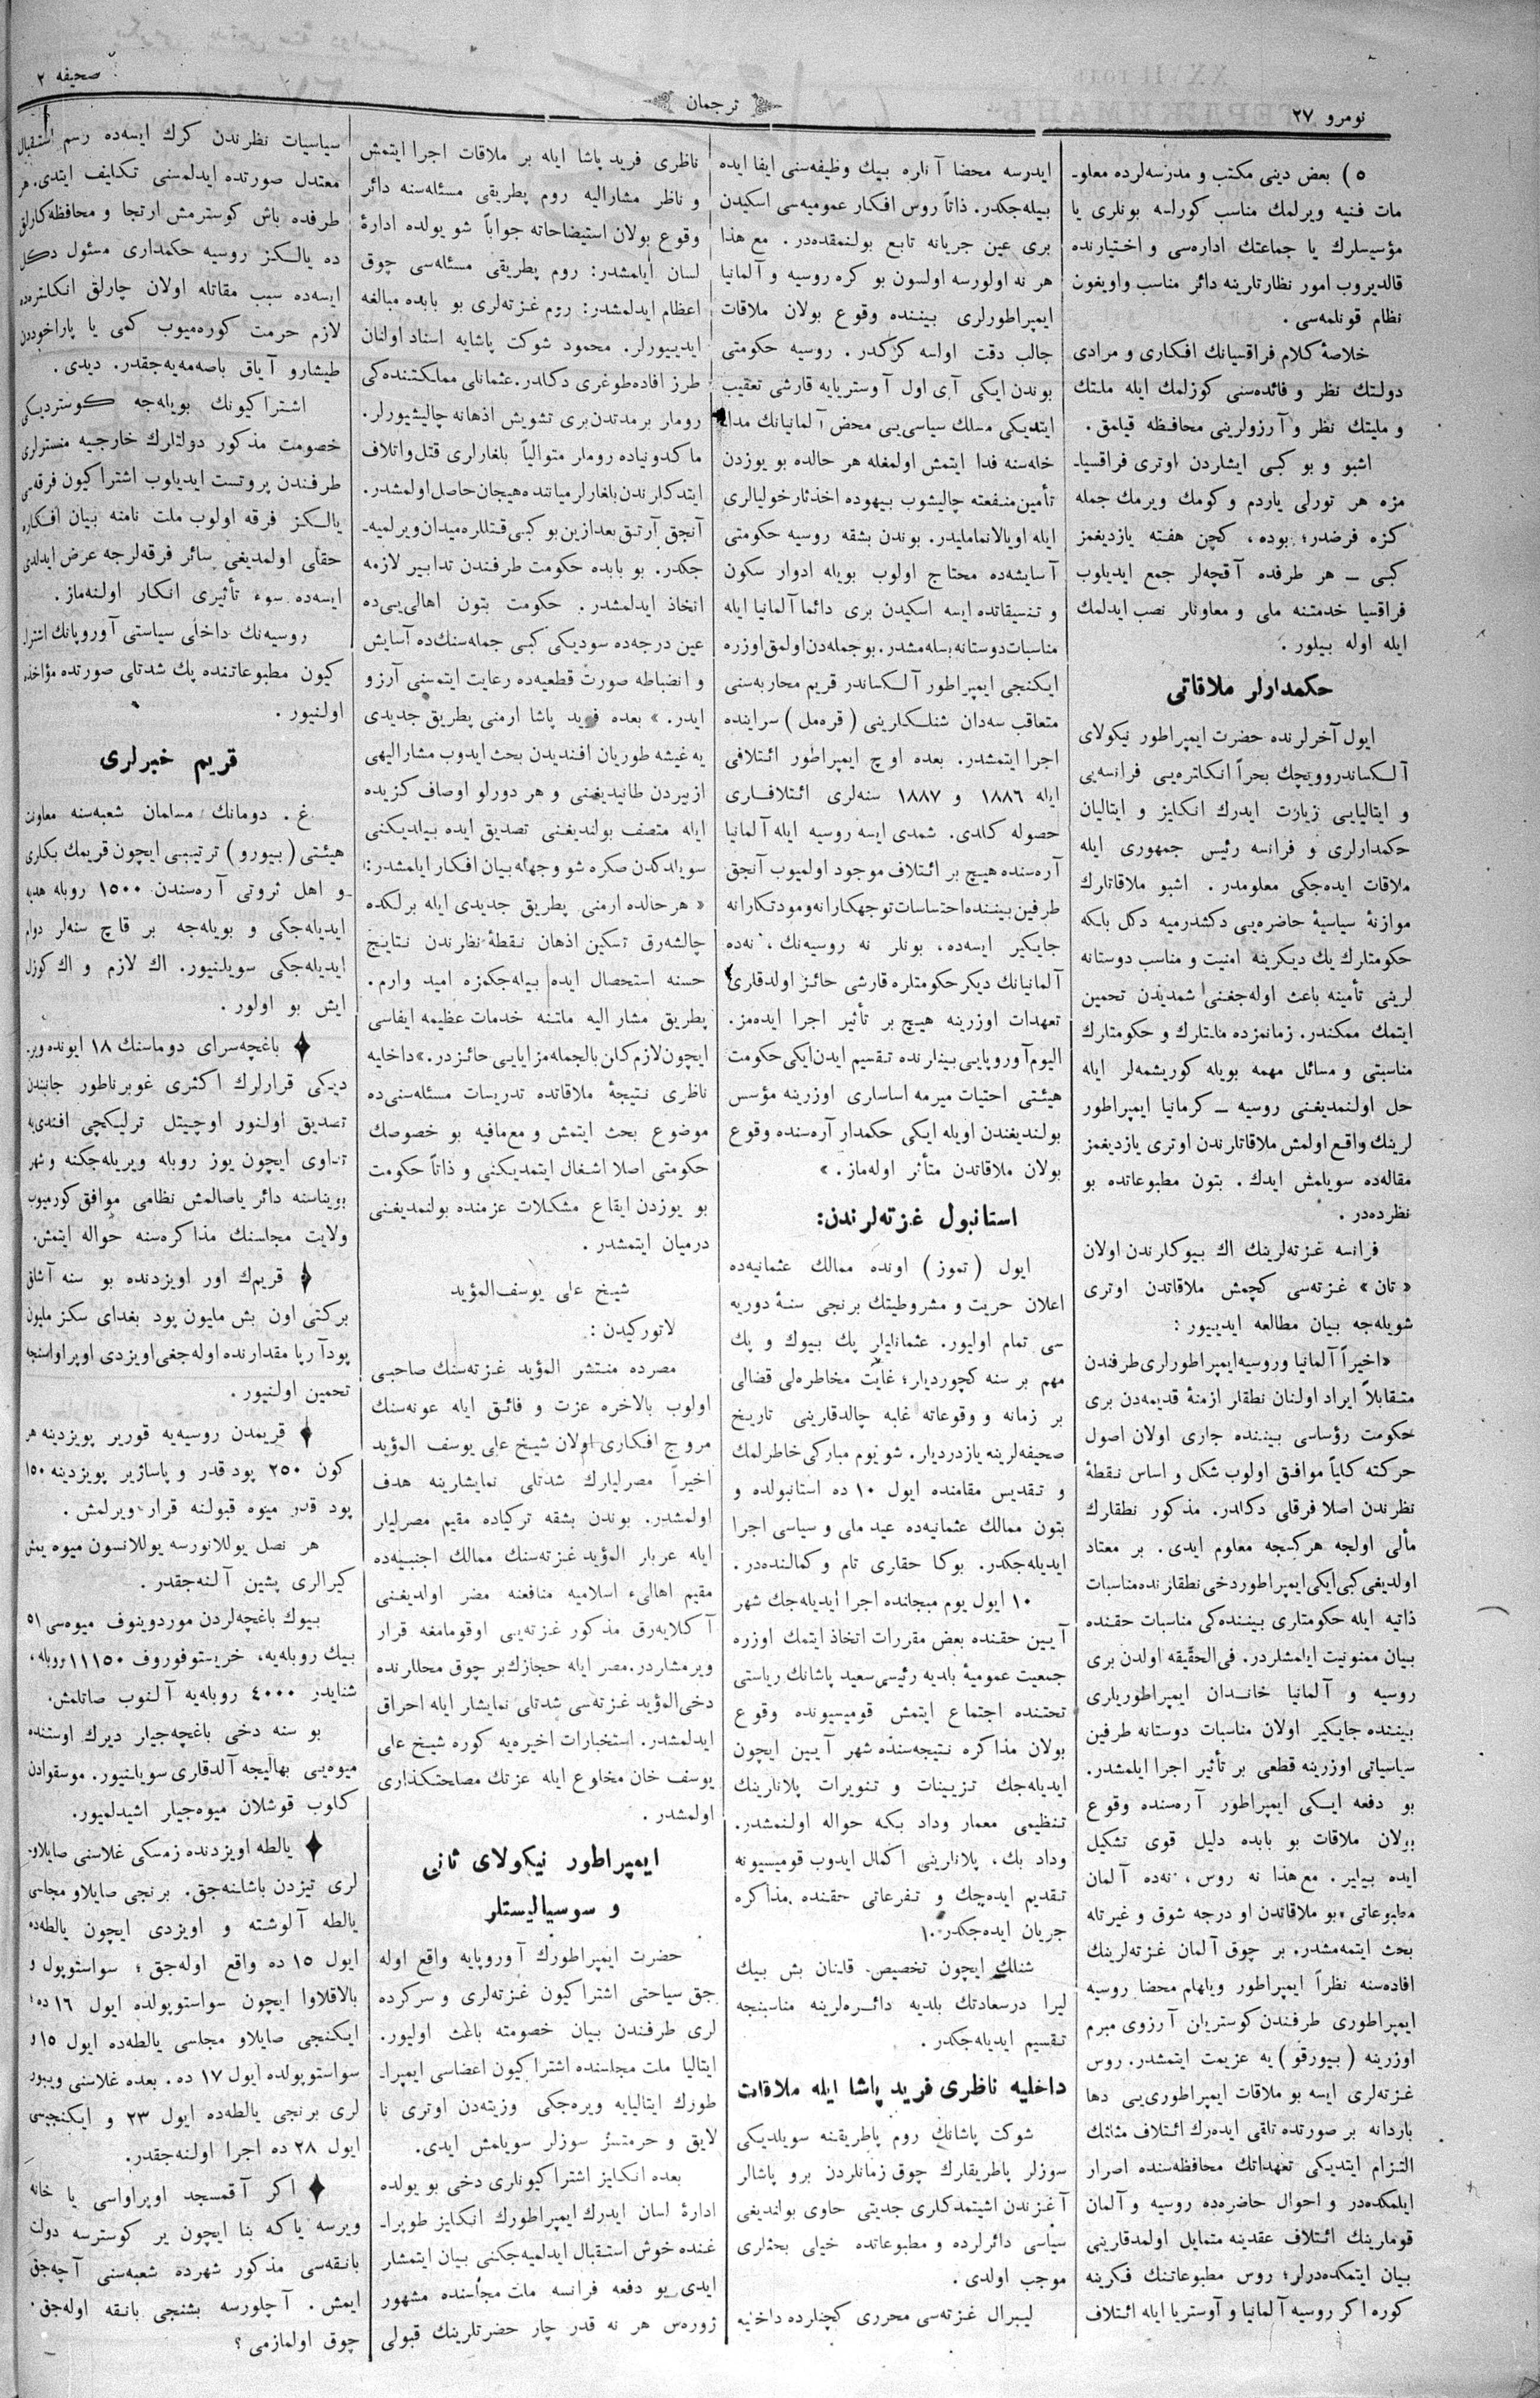 نومرو ٢٧
ترجمان
صحیفه ٢
٥) بعض دینی مکتب و مدرسه‌لرده معلو-
مات فنیه ویرلمك مناسب کورلسه بونلری یا
مؤسیسلرك یا جماعتك اداره‌سی و اختیارنده
قالدیروب امور نظارتلرینه دائر مناسب واویغون
نظام قونلمه‌سی.
خلاصۀ کلام فراقسیانك افکاری و مرادی
دولتك نظر و فائده‌سنی کوزلمك ایله ملتك
و ملیتك نظر و آرزولرینی محافظه قیلمق.
اشبو و بو کبی ایشلردن اوتری فراقسیا-
مزه هر تورلی یاردم و کومك ویرمك جمله
کزه فرضدر؛ بوده، کچن هفته یازدیغمز
کبی — هر طرفده آقچه‌لر جمع ایدیلوب
فراقسیا خدمتنه ملی و معاونلر نصب ایدلمك
ایله اوله بیلور.
حکمدارلر ملاقاتی
ایول آخرلرنده حضرت ایمپراطور نیکولای
آلکساندروویچك بحراً انکلتره‌یی فرانسه‌یی
و ایتالیایی زیارت ایدرك انکلیز و ایتالیان
حکمدارلری و فرانسه رئیس جمهوری ایله
ملاقات ایده‌جکی معلومدر. اشبو ملاقاتلرك
موازنۀ سیاسیۀ حاضره‌یی دکشدرمیه دکل بلکه
حکومتلرك یك دیکرینه امنیت و مناسب دوستانه
لرینی تأمینه باعث اوله‌جغنی شمدیدن تخمین
ایتمك ممکندر. زمانمزده ملتلرك و حکومتلرك
مناسبتی و مسائل مهمه بویله کوریشمه‌لر ایله
حل اولنمدیغنی روسیه — کرمانیا ایمپراطور
لرینك واقع اولمش ملاقاتلرندن اوتری یازدیغمز
مقاله‌ده سویلمش ایدك. بتون مطبوعاتده بو
نظرده‌در.
فرانسه غزته‌لرینك اك بیوکلرندن اولان
«تان» غزته‌سی کچمش ملاقاتدن اوتری
شویله‌جه بیان مطالعه ایدییور:
«اخیراً آلمانیا وروسیه ایمپراطورلری طرفندن
متقابلاً ایراد اولنان نطقلر ازمنۀ قدیمه‌دن بری
حکومت رؤساسی بیننده جاری اولان اصول
حرکته کلیاً موافق اولوب شکل و اساس نقطۀ
نظرندن اصلا فرقلی دکلدر. مذکور نطقلرك
مألی اولجه هرکسجه معلوم ایدی. بر معتاد
اولدیغی کبی ایکی ایمپراطور دخی نطقلرنده مناسبات
ذاتیه ایله حکومتلری بیننده‌کی مناسبات حقنده
بیان ممنونیت ایلمشلردر. فی‌الحقیقه اولدن بری
روسیه و آلمانیا خاندان ایمپراطوریلری
بیننده جایکیر اولان مناسبات دوستانه طرفین
سیاسیاتی اوزرینه قطعی بر تأثیر اجرا ایلمشدر.
بو دفعه ایکی ایمپراطور آره‌سنده وقوع
بولان ملاقات بو بابده دلیل قوی تشکیل
ایده بیلیر. مع هذا نه روس، نه‌ده آلمان
مطبوعاتی بو ملاقاتدن او درجه شوق و غیرتله
بحث ایتمه‌مشدر. بر چوق آلمان غزته‌لرینك
افاده‌سنه نظراً ایمپراطور ویلهلم محضا روسیه
ایمپراطوری طرفندن کوستریلن آرزوی مبرم
اوزرینه (بیورقو) یه عزیمت ایتمشدر. روس
غزته‌لری ایسه بو ملاقات ایمپراطوری‌یی دها
باردانه بر صورتده تلقی ایده‌رك ائتلاف مثلثك
التزام ایتدیکی تعهداتك محافظه‌سنده اصرار
ایلمکده‌در و احوال حاضره‌ده روسیه و آلمان
قومارینك ائتلاف عقدینه متمایل اولمدقلرینی
بیان ایتمکده‌درلر؛ روس مطبوعاتنك فکرینه
کوره اکر روسیه آلمانیا و آوستریا ایله ائتلاف
ایدرسه محضا آناره بیك وظیفه‌سنی ایفا ایده
بیله‌جکدر. ذاتاً روس افکار عمومیه‌سی اسکیدن
بری عین جریانه تابع بولنمقده‌در. مع هذا
هر نه اولورسه اولسون بو کره روسیه و آلمانیا
ایمپراطورلری بیننده وقوع بولان ملاقات
جالب دقت اولسه کرکدر. روسیه حکومتی
بوندن ایکی آی اول آوستریایه قارشی تعقیب
ایتدیکی مسلك سیاسی‌یی محض آلمانیانك مدا
خله‌سنه فدا ایتمش اولمغله هر حالده بو یوزدن
تأمین منفعته چالیشوب بیهوده اخذثار خولیالری
ایله اویالانماملیدر. بوندن بشقه روسیه حکومتی
آسایشه‌ده محتاج اولوب بویله ادوار سکون
و تنسیقاتده ایسه اسکیدن بری دائما آلمانیا ایله
مناسبات دوستانه بسله‌مشدر. بو جمله‌دن اولمق اوزره
ایکنجی ایمپراطور آلکساندر قریم محاربه‌سنی
متعاقب سه‌دان شنلکلرینی (قره‌مل) سراینده
اجرا ایتمشدر. بعده اوچ ایمپراطور ائتلافی
ایله ١٨٨٦ و ١٨٨٧ سنه‌لری ائتلافلری
حصوله کلدی. شمدی ایسه روسیه ایله آلمانیا
آره‌سنده هیچ بر ائتلاف موجود اولمیوب آنجق
طرفین بیننده احتساسات توجهکارانه و مودتکارانه
جایکیر ایسه‌ده، بونلر نه روسیه‌نك، نه‌ده
آلمانیانك دیکر حکومتلره قارشی حائز اولدقلری
تعهدات اوزرینه هیچ بر تأثیر اجرا ایده‌مز.
الیوم آوروپایی بینلرنده تقسیم ایدن ایکی حکومت
هیئتی احتیات میرمه اساسلری اوزرینه مؤسس
بولندیغندن اویله ایکی حکمدار آره‌سنده وقوع
بولان ملاقاتدن متأثر اوله‌ماز.»
استانبول غزته‌لرندن:
ایول (تموز) اونده ممالك عثمانیه‌ده
اعلان حریت و مشروطیتك برنجی سنۀ دوریه
سی تمام اولیور. عثمانلیلر پك بیوك و پك
مهم بر سنه کچوردیلر؛ غایت مخاطره‌لی قضالی
بر زمانه و وقوعاته غلبه چالدقلرینی تاریخ
صحیفه‌لرینه یازدردیلر. شو یوم مبارکی خاطرلمك
و تقدیس مقامنده ایول ١٠ ده استانبولده و
بتون ممالك عثمانیه‌ده عید ملی و سیاسی اجرا
ایدیله‌جکدر. بوکا حقلری تام و کمالنده‌در.
١٠ ایول یوم مبجلنده اجرا ایدیله‌جك شهر
آیین حقنده بعض مقررات اتخاذ ایتمك اوزره
جمعیت عمومیۀ بلدیه رئیسی سعید پاشانك ریاستی
تحتنده اجتماع ایتمش قومیسیونده وقوع
بولان مذاکره نتیجه‌سنده شهر آیین ایچون
ایدیله‌جك تزیینات و تنویرات پلانلرینك
تنظیمی معمار وداد بکه حواله اولنمشدر.
وداد بك، پلانلرینی اکمال ایدوب قومیسیونه
تقدیم ایده‌چك و تفرعاتی حقنده مذاکره
جریان ایده‌جکدر.
شنلك ایچون تخصیص قلنان بش بیك
لیرا درسعادتك بلدیه دائره‌لرینه مناسبنجه
تقسیم ایدیله‌جکدر.
داخلیه ناظری فرید پاشا ایله ملاقات
شوکت پاشانك روم پاطریقنه سویلدیکی
سوزلر پاطریقلرك چوق زمانلردن برو پاشالر
آغزندن اشیتمدکلری جدیتی حاوی بولندیغی
سیاسی دائرلرده و مطبوعاتده خیلی بحثلری
موجب اولدی.
لیبرال غزته‌سی محرری کچنلرده داخلیه
ناظری فرید پاشا ایله بر ملاقات اجرا ایتمش
و ناظر مشارالیه روم پطریقی مسئله‌سنه دائر
وقوع بولان استیضاحاته جواباً شو یولده ادارۀ
لسان ایلمشدر: روم پطریقی مسئله‌سی چوق
اعظام ایدلمشدر: روم غزته‌لری بو بابده مبالغه
ایدییورلر. محمود شوکت پاشایه اسناد اولنان
طرز افاده طوغری دکلدر. عثمانلی مملکتنده‌کی
روملر بر مدتدن بری تشویش اذهانه چالیشیورلر.
ماکدونیاده روملر متوالیاً بلغارلری قتل واتلاف
ایتدکلرندن بلغارلر میاننده هیجان حاصل اولمشدر.
آنجق آرتق بعدازین بو کبی قتللره میدان ویرلمیه-
جکدر. بو بابده حکومت طرفندن تدابیر لازمه
اتخاذ ایدلمشدر. حکومت بتون اهالی‌یی‌ده
عین درجه‌ده سودیکی کبی جمله‌سنك‌ده آسایش
و انضباطه صورت قطعیه‌ده رعایت ایتمسنی آرزو
ایدر.» بعده فرید پاشا ارمنی پطریق جدیدی
یه غیشه طوریان افندیدن بحث ایدوب مشارالیهی
ازبیردن طانیدیغنی و هر دورلو اوصاف کزیده
ایله متصف بولندیغنی تصدیق ایده بیلدیکنی
سویلدکدن صکره شو وجهله بیان افکار ایلمشدر:
«هر حالده ارمنی پطریق جدیدی ایله برلکده
چالشه‌رق تسکین اذهان نقطۀ نظرندن نتایج
حسنه استحصال ایده بیله‌جکمزه امید وارم.
پطریق مشار الیه ملتنه خدمات عظیمه ایفاسی
ایچون لازم کلن بالجمله مزایایی حائزدر.» داخلیه
ناظری نتیجۀ ملاقاتده تدریسات مسئله‌سنی‌ده
موضوع بحث ایتمش و مع مافیه بو خصوصك
حکومتی اصلا اشغال ایتمدیکنی و ذاتاً حکومت
بو یوزدن ایقاع مشکلات عزمنده بولنمدیغنی
درمیان ایتمشدر.
شیخ علی یوسف المؤید
لاتورکیدن:
مصرده منتشر المؤید غزته‌سنك صاحبی
اولوب بالاخره عزت و فائق ایله عونه‌سنك
مروج افکاری اولان شیخ علی یوسف المؤید
اخیراً مصرلیلرك شدتلی نمایشلرینه هدف
اولمشدر. بوندن بشقه ترکیاده مقیم مصرلیلر
ایله عربلر المؤید غزته‌سنك ممالك اجنبیه‌ده
مقیم اهالیء اسلامیه منافعنه مضر اولدیغنی
آکلایه‌رق مذکور غزته‌یی اوقومامغه قرار
ویرمشلردر. مصر ایله حجازك بر چوق محللرنده
دخی المؤید غزته‌سی شدتلی نمایشلر ایله احراق
ایدلمشدر. استخبارات اخیره‌یه کوره شیخ علی
یوسف خان مخلوع ایله عزتك مصلحتکذاری
اولمشدر.
ایمپراطور نیکولای ثانی
و سوسیالیستلر
حضرت ایمپراطورك آوروپایه واقع اوله
جق سیاحتی اشتراکیون غزته‌لری و سرکرده
لری طرفندن بیان خصومته باعث اولیور.
ایتالیا ملت مجلسنده اشتراکیون اعضاسی ایمپرا-
طورك ایتالیایه ویره‌جکی وزیته‌دن اوتری نا
لایق و حرمتسز سوزلر سویلمش ایدی.
بعده انکلیز اشتراکیونلری دخی بو یولده
ادارۀ لسان ایدرك ایمپراطورك انکلیز طوپرا-
غنده خوش استقبال ایدلمیه‌جکنی بیان ایتمشلر
ایدی بو دفعه فرانسه ملت مجلسنده مشهور
ژوره‌س هر نه قدر چار حضرتلرینك قبولی
سیاسیات نظرندن کرك ایسه‌ده رسم استقبال
معتدل صورتده ایدلمسنی تکلیف ایتدی. هر
طرفده باش کوسترمش ارتجا و محافظه کارلق
ده یالکز روسیه حکمداری مسئول دکل
ایسه‌ده سبب مقاتله اولان چارلق انکلتره‌ده
لازم حرمت کوره‌میوب کمی یا پاراخوددن
طیشارو آیاق باصه‌مه‌یه‌جقدر. دیدی.
اشتراکیونك بویله‌جه کوستردیکی
خصومت مذکور دولتلرك خارجیه منسترلری
طرفندن پروتست ایدیلوب اشتراکیون فرقه‌سی
یالکز فرقه اولوب ملت نامنه بیان افکاره
حقلی اولمدیغی سائر فرقه‌لرجه عرض ایدلدی
ایسه‌ده سوء تأثیری انکار اولنه‌ماز.
روسیه‌نك داخلی سیاستی آوروپانك اشترا
کیون مطبوعاتنده پك شدتلی صورتده مؤاخذه
اولنیور.
قریم خبرلری
غ. دومانك مسلمان شعبه‌سنه معاونت
هیئتی (بیورو) ترتیبی ایچون قریمك بکلری
و اهل ثروتی آره‌سندن ١٥٠٠ روبله هدیه
ایدیله‌جکی و بویله‌جه بر قاچ سنه‌لر دوام
ایدیله‌جکی سویلنیور. اك لازم و اك کوزل
ایش بو اولور.
باغچه‌سرای دوماسنك ١٨ ایونده ویر-
دیکی قرارلرك اکثری غوبرناطور جانبندن
تصدیق اولنور اوچیتل ترلیکچی افندی‌یه
تداوی ایچون یوز روبله ویریله‌جکنه و شهر
بویناسنه دائر یاصالمش نظامی موافق کورمیوب
ولایت مجلسنك مذاکره‌سنه حواله ایتمش.
قریم‌ك اور اویزدنده بو سنه آشلق
برکتی اون بش ملیون پود بغدای سکز ملیون
پود آرپا مقدارنده اوله‌جغی اویزدی اوپراواسنجه
تخمین اولنیور.
قریمدن روسیه‌یه قوریر پویزدینه هر
کون ٢٥٠ پود قدر و پاساژیر پویزدینه ١٥٠
پود قدر میوه قبولنه قرار ویرلمش.
هر نصل یوللانورسه یوللانسون میوه یمش
کیرالری پشین آلنه‌جقدر.
بیوك باغچه‌لردن موردوینوف میوه‌سی ٥١
بیك روبله‌یه، خریستوفوروف ١١١٥٠ روبله،
شنایدر ٤٠٠٠ روبله‌یه آلنوب صاتلمش.
بو سنه دخی باغچه‌جیلر دیرك اوستنده
میوه‌یی بهالیجه آلدقلری سویلنیور. موسقوادن
کلوب قوشلان میوه‌جیلر اشیدلمیور.
یالطه اویزدنده زمسکی غلاسنی صایلاو-
لری تیزدن باشلنه‌جق. برنجی صایلاو مجلسی
یالطه آلوشته و اویزدی ایچون یالطه‌ده
ایول ١٥ ده واقع اوله‌جق؛ سواستوپول و
بالاقلاوا ایچون سواستوپولده ایول ١٦ ده؛
ایکنجی صایلاو مجلسی یالطه‌ده ایول ١٥ و
سواستوپولده ایول ١٧ ده. بعده غلاسنی ویبور
لری برنجی یالطه‌ده ایول ٢٣ و ایکنجیسی
ایول ٢٨ ده اجرا اولنه‌جقدر.
اکر آقمسجد اوپراواسی یا خانه
ویرسه یاکه بنا ایچون یر کوسترسه دولت
بانقه‌سی مذکور شهرده شعبه‌سنی آچه‌جق
ایمش. آچلورسه بشنجی بانقه اوله‌جق.
چوق اولمازمی؟